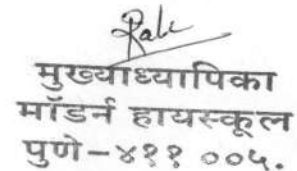 मुख्याध्यापिका
मॉडर्न हायस्कूल
पुणे-४११ ००५.